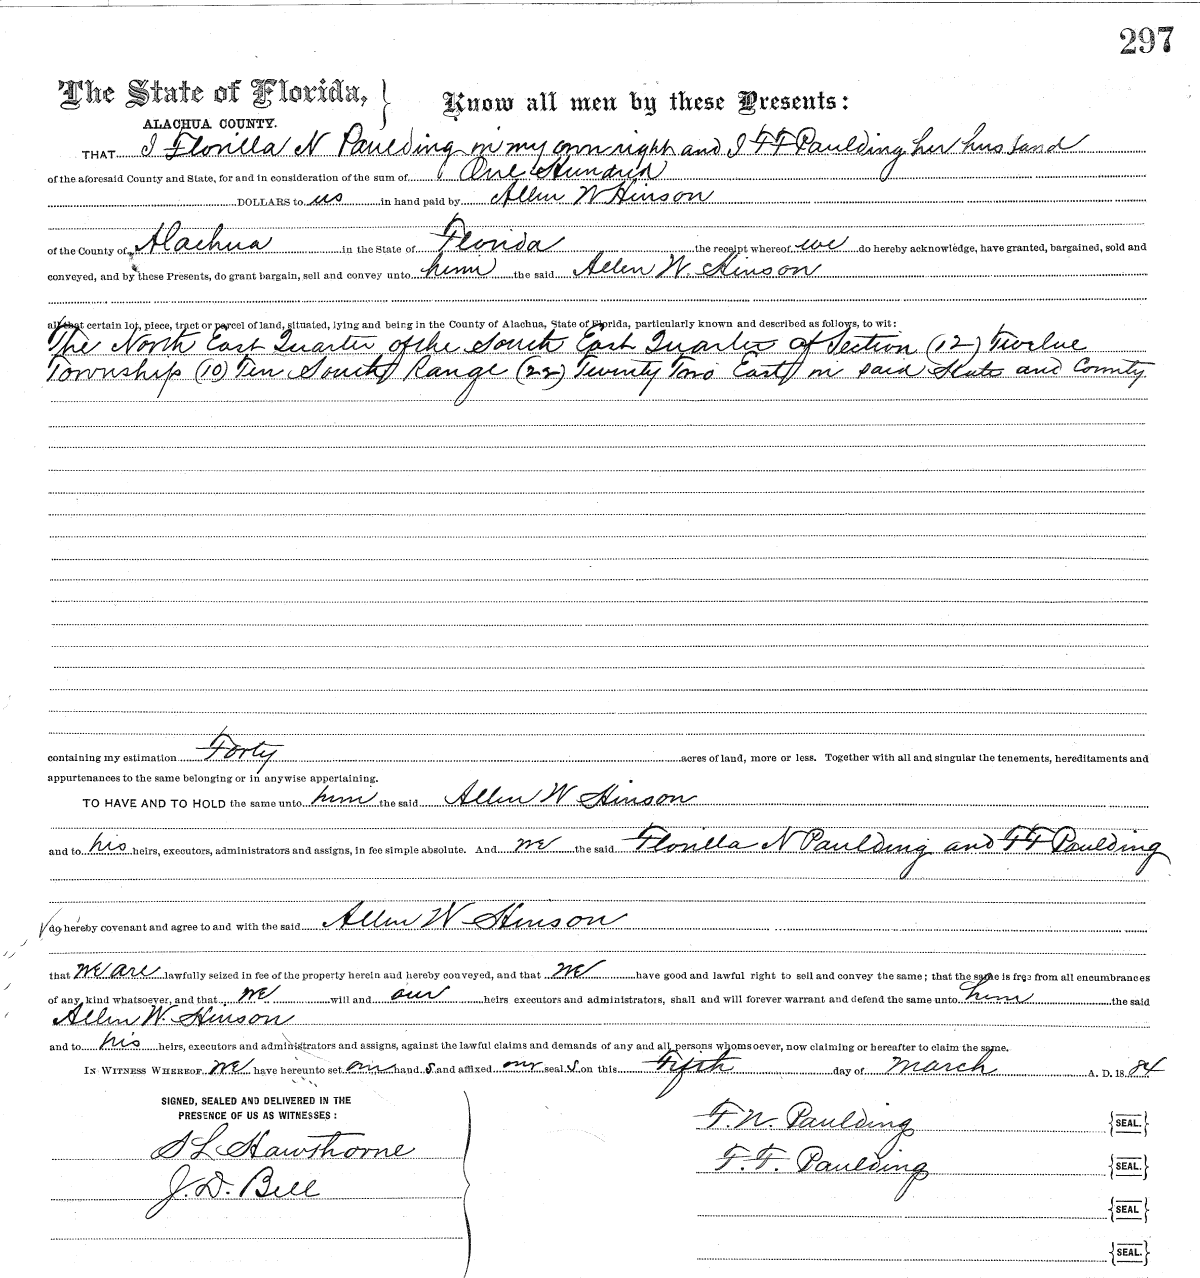 297
The State of Florida, } Know all men by these Presents:
ALACHUA COUNTY.
THAT I Florilla N Paulding in my own right and I F F Paulding her husband
of the aforesaid County and State, for and in consideration of the sum of One Hundred
DOLLARS to us in hand paid by Allen W Hinson
of the County of Alachua in the State of Florida the receipt whereof we do hereby acknowledge, have granted, bargained, sold and
conveyed, and by these Presents, do grant bargain, sell and convey unto him the said Allen W. Hinson
all that certain lot, piece, tract or parcel of land, situated, lying and being in the County of Alachua, State of Florida, particularly known and described as follows, to wit:
The North East Quarter of the South East Quarter of Section (12) Twelve
Township (10) Ten South Range (22) Twenty Two East in said State and County
containing my estimation Forty acres of land, more or less. Together with all and singular the tenements, hereditaments and
appurtenances to the same belonging or in anywise appertaining.
TO HAVE AND TO HOLD the same unto him the said Allen W Hinson
and to his heirs, executors, administrators and assigns, in fee simple absolute. And we the said Florilla N Paulding and F F Paulding
do hereby covenant and agree to and with the said Allen W Hinson
that we are lawfully seized in fee of the property herein and hereby conveyed, and that we have good and lawful right to sell and convey the same; that the same is free from all encumbrances
of any kind whatsoever, and that we will and our heirs executors and administrators, shall and will forever warrant and defend the same unto him the said
Allen W. Hinson
and to his heirs, executors and administrators and assigns, against the lawful claims and demands of any and all persons whomsoever, now claiming or hereafter to claim the same.
IN WITNESS WHEREOF we have hereunto set our hand s and affixed our seal s on this Fifth day of March A. D. 18 84
SIGNED, SEALED AND DELIVERED IN THE
PRESENCE OF US AS WITNESSES:
S L Hawthorne
J. D. Bell
F. N. Paulding {SEAL.}
F. F. Paulding {SEAL.}
{SEAL.}
{SEAL.}